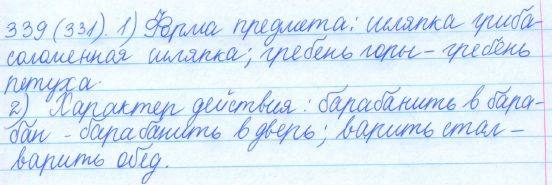 339 (331). 1) Форма предмета: шляпка гриба-
соломенная шляпка; гребень горы - гребень
петуха.
2) Характер действия: барабанить в бара-
бан - барабанить в дверь; варить стал -
варить обед.